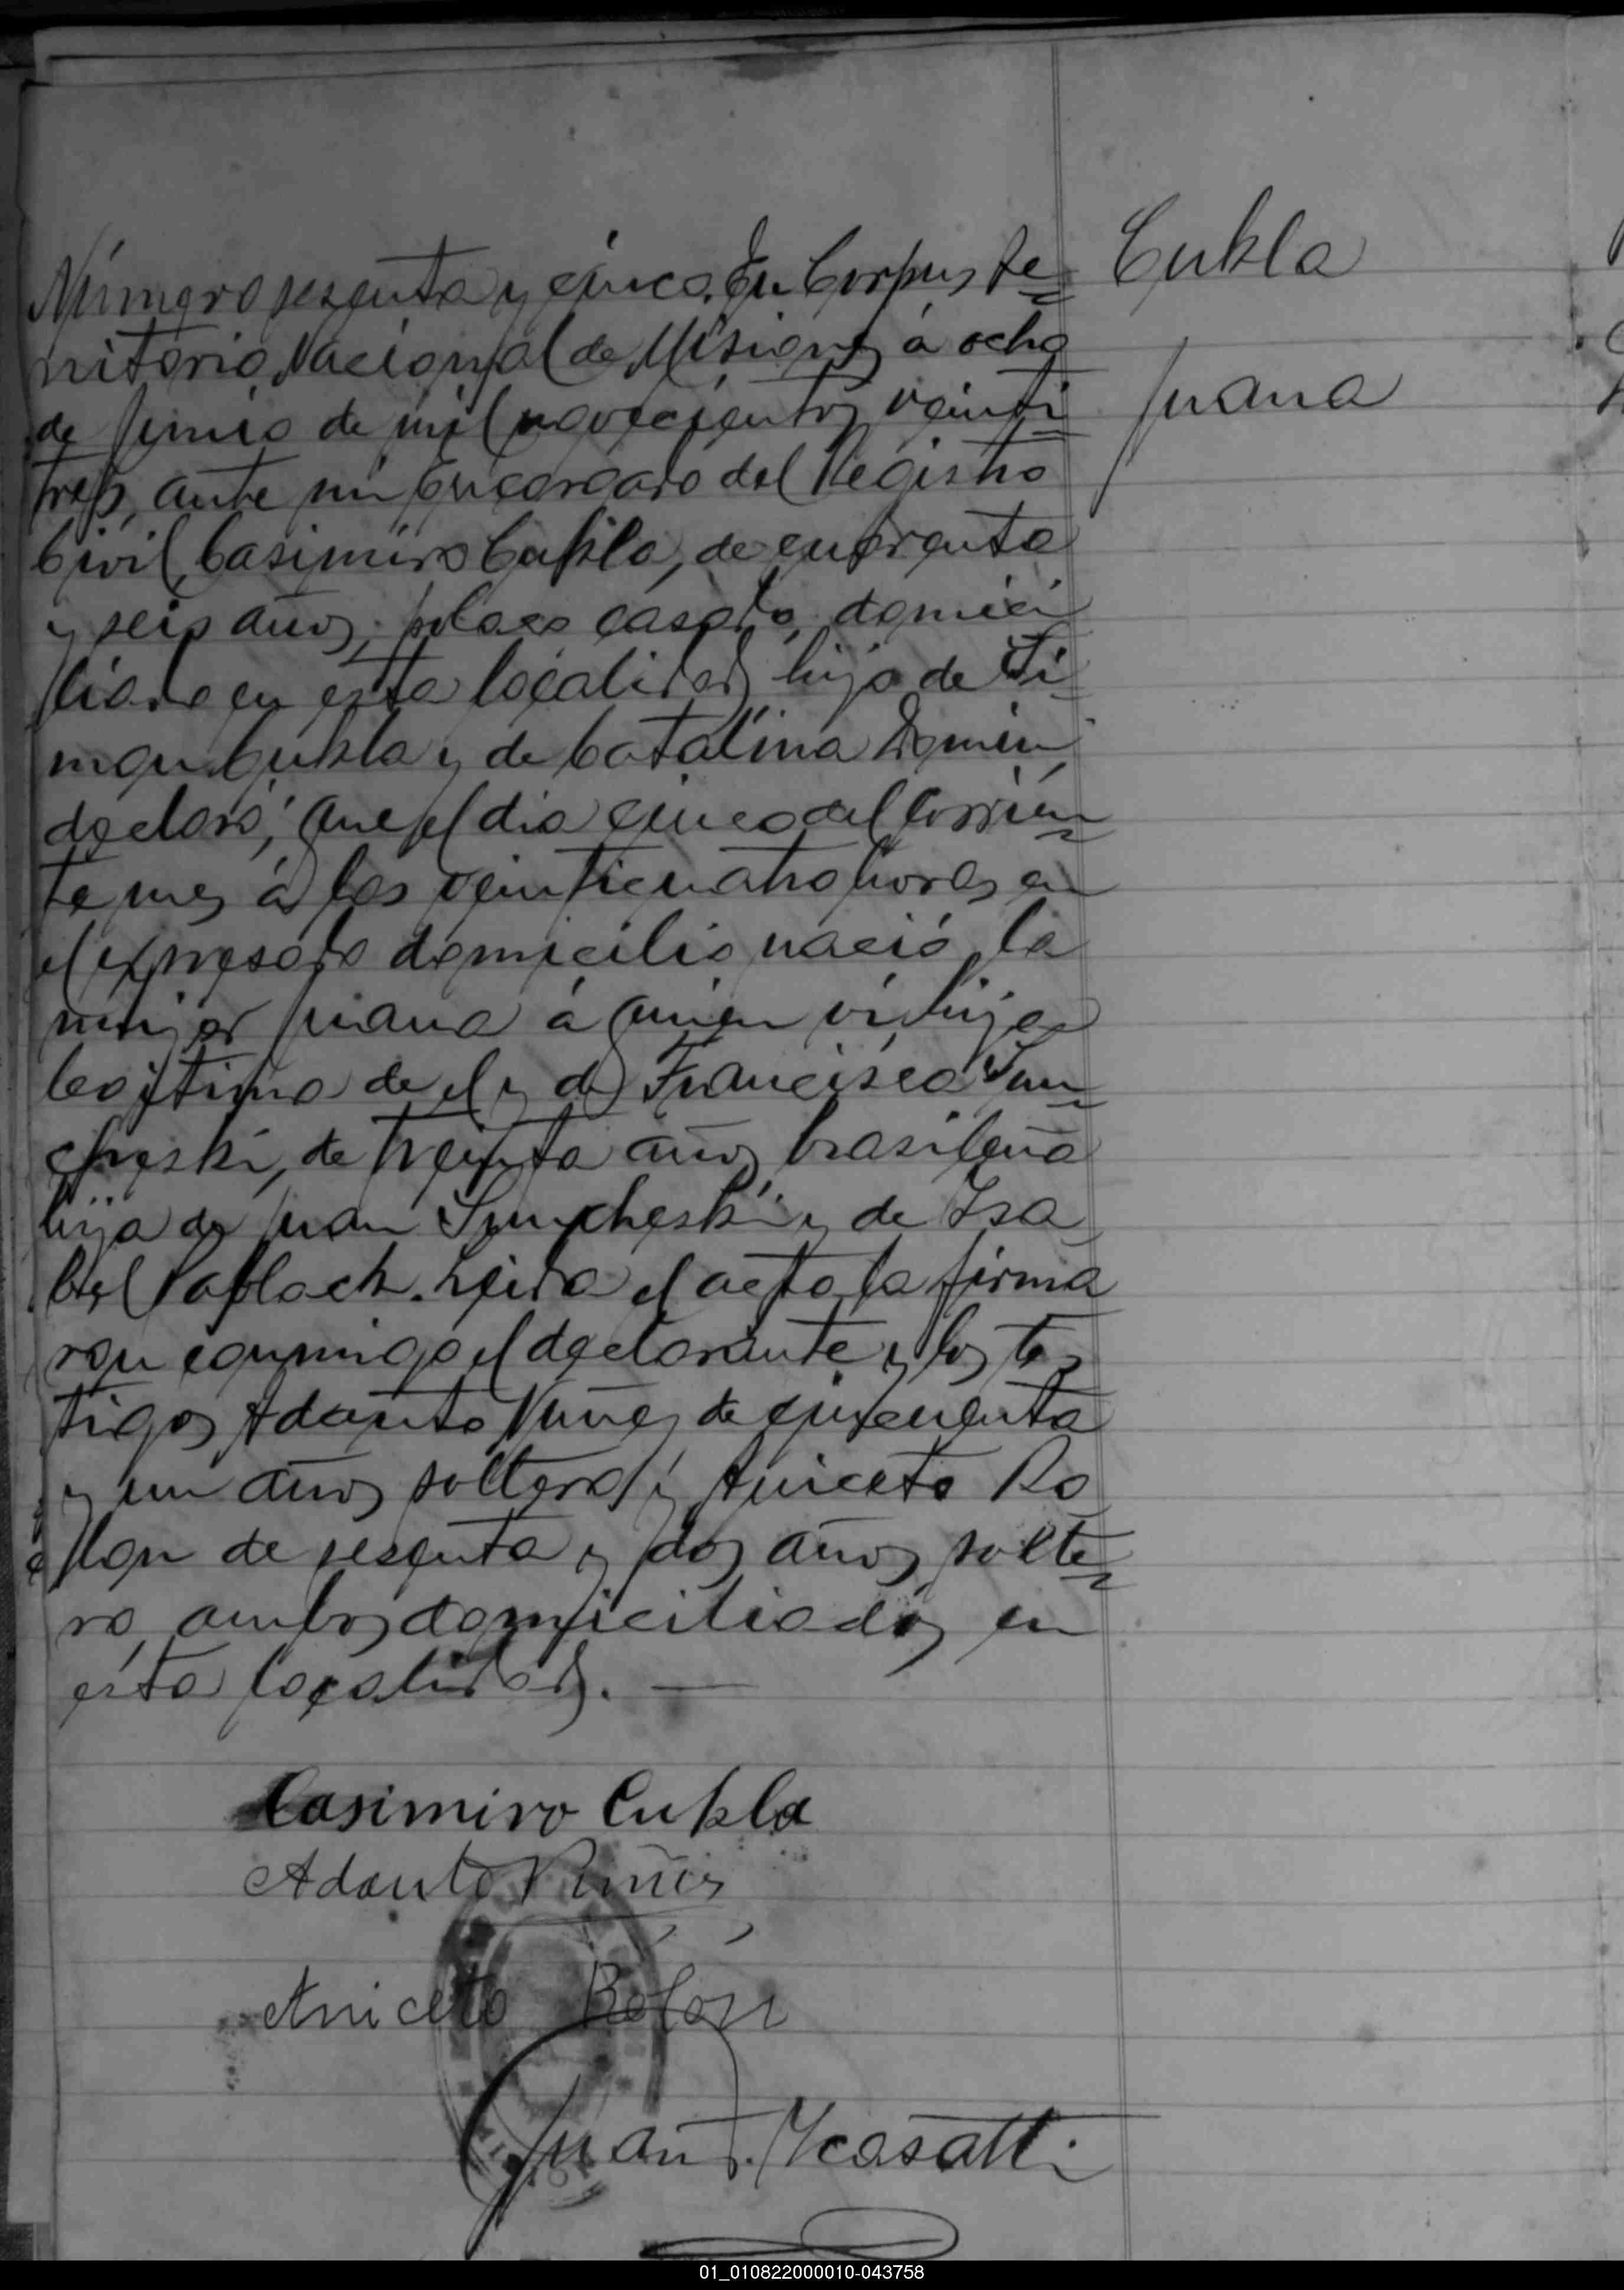 Cukla
Juana
Número sesenta y cinco. En Corpus Te=
rritorio Nacional de Misiones á ocho
de Junio de mil novecientos veinti=
tres, ante mi Encargado del Registro
Civil, Casimiro Cukla, de cuarenta
y seis años, polaco casado, domici
liado en esta localidad, hijo de Si=
mon Cukla y de Catalina Domin,
declaró: Que el dia cinco del corrien=
te mes á las veinticuatro horas en
el expresado domicilio nació la
mujer Juana á quien vi hija
legitima de el y de Francisca Sun=
cheski, de treinta años brasileña
hija de Juan Suncheski y de Isa
bel Paplack. Leida el acta la firma
ron conmigo el declarante y los tes
tigos Adanto Nuñes de cincuenta
y un años soltero y Aniceto Ro
llon de sesenta y dos años solte=
ro, ambos domiciliados en
esta localidad. —
Casimiro Cukla
Adanto Nuñes
Aniceto Rolon
Juan
01_010822000010-043758